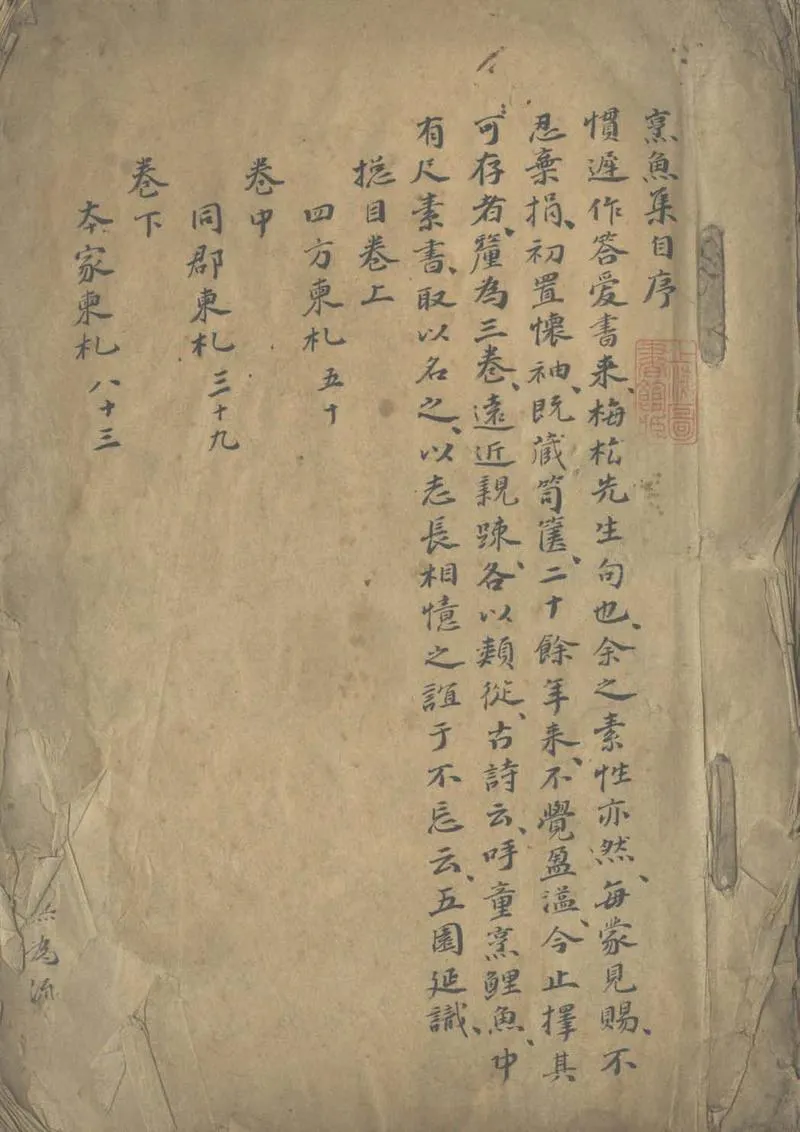 烹魚集目序
慣遲作答愛書来、梅松先生句也、余之素性亦然、每蒙見賜、不
忍棄捐、初置懷袖、既蔵笥篋、二十餘年来、不覺盈溢、今止擇其
可存者、釐為三卷、遠近親踈、各以類從、古詩云、呼童烹鯉魚、中
有尺素書、取以名之、以志長相憶之誼于不忘云、五園延識、
捴目卷上
四方柬札 五十
卷中
同郡柬札 三十九
卷下
本家柬札 八十三
上海圖
書館所
為流